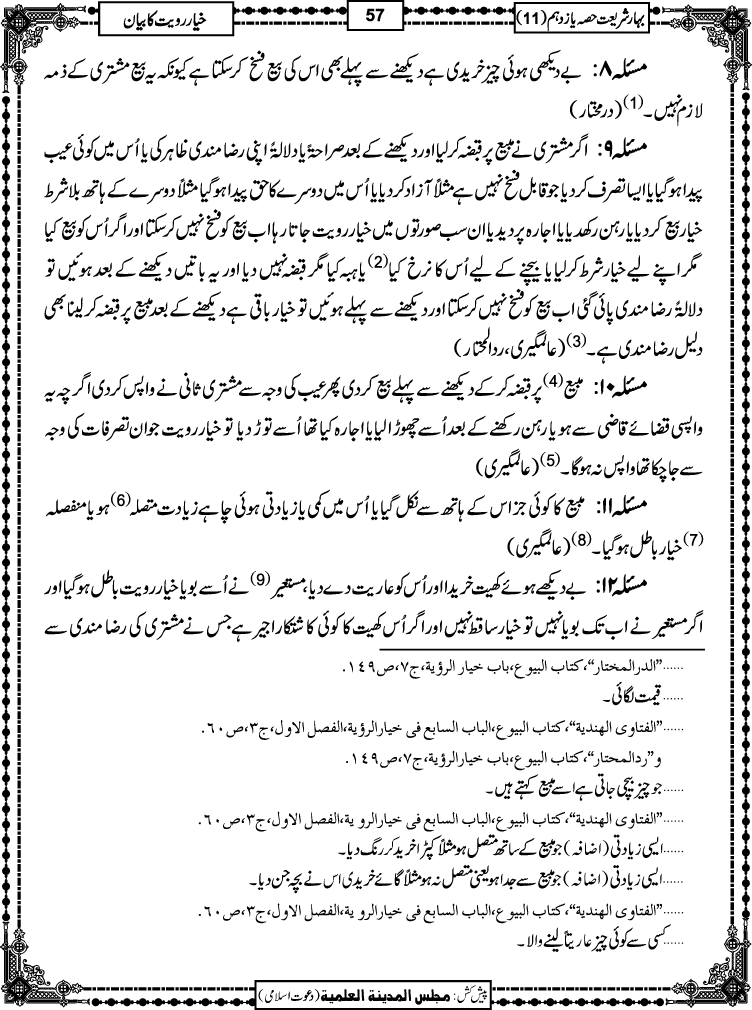 بہار شریعت حصہ یازدہم (11)
57
خیار رویت کا بیان
مسئلہ ۸: بے دیکھی ہوئی چیز خریدی ہے دیکھنے سے پہلے بھی اس کی بیع فسخ کرسکتا ہے کیونکہ یہ بیع مشتری کے ذمہ
لازم نہیں۔(1) (درمختار)
مسئلہ ۹: اگر مشتری نے مبیع پر قبضہ کرلیا اور دیکھنے کے بعد صراحۃً یا دلالۃً اپنی رضا مندی ظاہر کی یا اُس میں کوئی عیب
پیدا ہوگیا یا ایسا تصرف کردیا جو قابل فسخ نہیں ہے مثلاً آزاد کردیا یا اُس میں دوسرے کا حق پیدا ہوگیا مثلاً دوسرے کے ہاتھ بلا شرط
خیار بیع کردیا یا رہن رکھدیا یا اجارہ پر دیدیا ان سب صورتوں میں خیار رویت جاتا رہا اب بیع کو فسخ نہیں کرسکتا اور اگر اُس کو بیع کیا
مگر اپنے لیے خیار شرط کرلیا یا بیچنے کے لیے اُس کا نرخ کیا(2) یا ہبہ کیا مگر قبضہ نہیں دیا اور یہ باتیں دیکھنے کے بعد ہوئیں تو
دلالۃً رضا مندی پائی گئی اب بیع کو فسخ نہیں کرسکتا اور دیکھنے سے پہلے ہوئیں تو خیار باقی ہے دیکھنے کے بعد مبیع پر قبضہ کرلینا بھی
دلیل رضا مندی ہے۔(3) (عالمگیری، ردالمحتار)
مسئلہ ۱۰: مبیع(4) پر قبضہ کرکے دیکھنے سے پہلے بیع کردی پھر عیب کی وجہ سے مشتری ثانی نے واپس کردی اگرچہ یہ
واپسی قضائے قاضی سے ہو یا رہن رکھنے کے بعد اُسے چھوڑا لیا یا اجارہ کیا تھا اُسے توڑ دیا تو خیار رویت جو ان تصرفات کی وجہ
سے جاچکا تھا واپس نہ ہوگا۔(5) (عالمگیری)
مسئلہ ۱۱: مبیع کا کوئی جز اس کے ہاتھ سے نکل گیا یا اُس میں کمی یا زیادتی ہوئی چاہے زیادت متصلہ(6) ہو یا منفصلہ
(7) خیار باطل ہوگیا۔(8) (عالمگیری)
مسئلہ ۱۲: بے دیکھے ہوئے کھیت خریدا اور اُس کو عاریت دے دیا، مستعیر(9) نے اُسے بویا خیار رویت باطل ہوگیا اور
اگر مستعیر نے اب تک بویا نہیں تو خیار ساقط نہیں اور اگر اُس کھیت کا کوئی کاشتکار اجیر ہے جس نے مشتری کی رضا مندی سے
......"الدرالمختار"، کتاب البیوع، باب خیار الرؤیة، ج٧، ص١٤٩.
......قیمت لگائی۔
......"الفتاوی الهندیة"، کتاب البیوع، الباب السابع فی خیارالرؤیة، الفصل الاول، ج٣، ص٦٠.
و"ردالمحتار"، کتاب البیوع، باب خیارالرؤیة، ج٧، ص١٤٩.
......جو چیز بیچی جاتی ہے اسے مبیع کہتے ہیں۔
......"الفتاوی الهندیة"، کتاب البیوع، الباب السابع فی خیارالرو یة، الفصل الاول، ج٣، ص٦٠.
......ایسی زیادتی (اضافہ) جو مبیع کے ساتھ متصل ہو مثلاً کپڑا خرید کر رنگ دیا۔
......ایسی زیادتی (اضافہ) جو مبیع سے جدا ہو یعنی متصل نہ ہو مثلاً گائے خریدی اس نے بچہ جن دیا۔
......"الفتاوی الهندیة"، کتاب البیوع، الباب السابع فی خیارالرو یة، الفصل الاول، ج٣، ص٦٠.
......کسی سے کوئی چیز عاریتاً لینے والا۔
پیش کش: مجلس المدینة العلمیة (دعوت اسلامی)